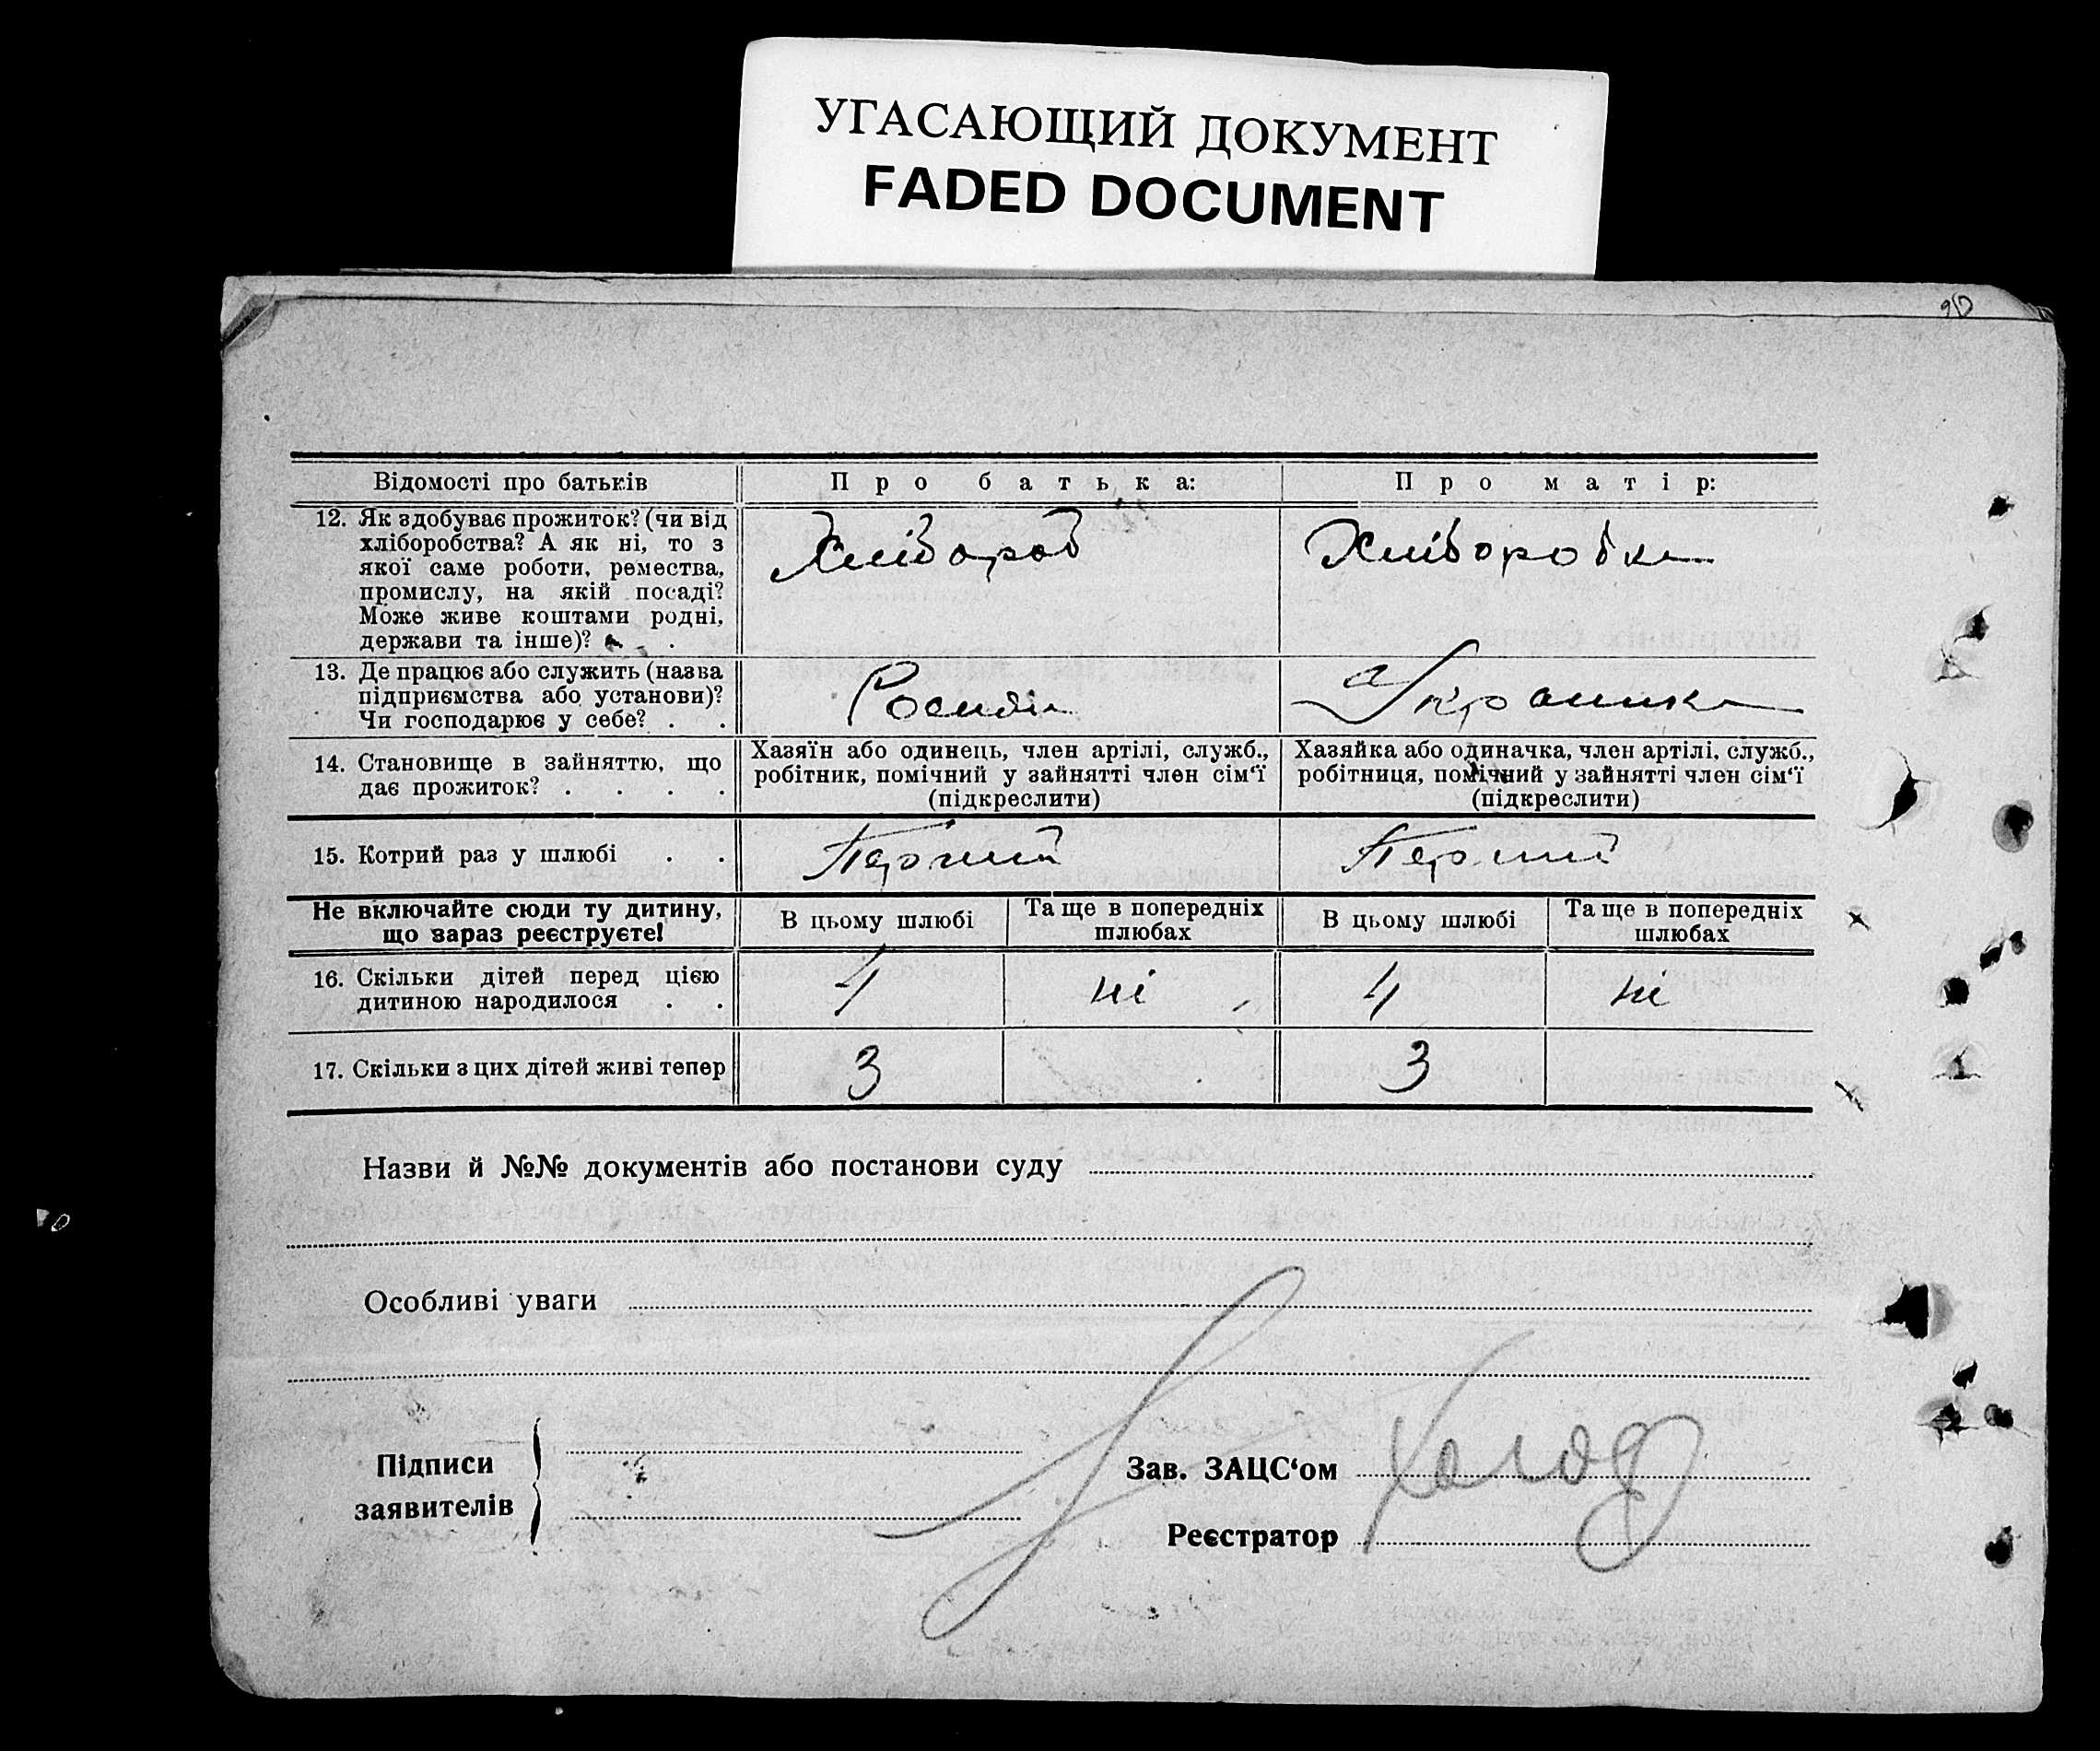 УГАСАЮЩИЙ ДОКУМЕНТ
FADED DOCUMENT
90
Відомості про батьків
Про батька:
Про матір:
12. Як здобуває прожиток? (чи від
хліборобства? А як ні, то з
якої саме роботи, ремества,
промислу, на якій посаді?
Може живе коштами родні,
держави та інше)? . .
Хлібороб
Хліборобка
13. Де працює або служить (назва
підприємства або установи)?
Чи господарює у себе? . .
Українка
14. Становище в зайняттю, що
дає прожиток? . . . .
Хазяїн або одинець, член артілі, служб.,
робітник, помічний у зайнятті член сім‘ї
(підкреслити)
Хазяйка або одиначка, член артілі, служб.,
робітниця, помічний у зайнятті член сім‘ї
(підкреслити)
15. Котрий раз у шлюбі . .
Перший
Перший
Не включайте сюди ту дитину,
що зараз реєструєте!
В цьому шлюбі
Та ще в попередніх
шлюбах
В цьому шлюбі
Та ще в попередніх
шлюбах
16. Скільки дітей перед цією
дитиною народилося . .
4
ні
4
ні
17. Скільки з цих дітей живі тепер
3
3
Назви й №№ документів або постанови суду
Особливі уваги
Підписи
заявителів
Зав. ЗАЦС‘ом
Холод
Реєстратор